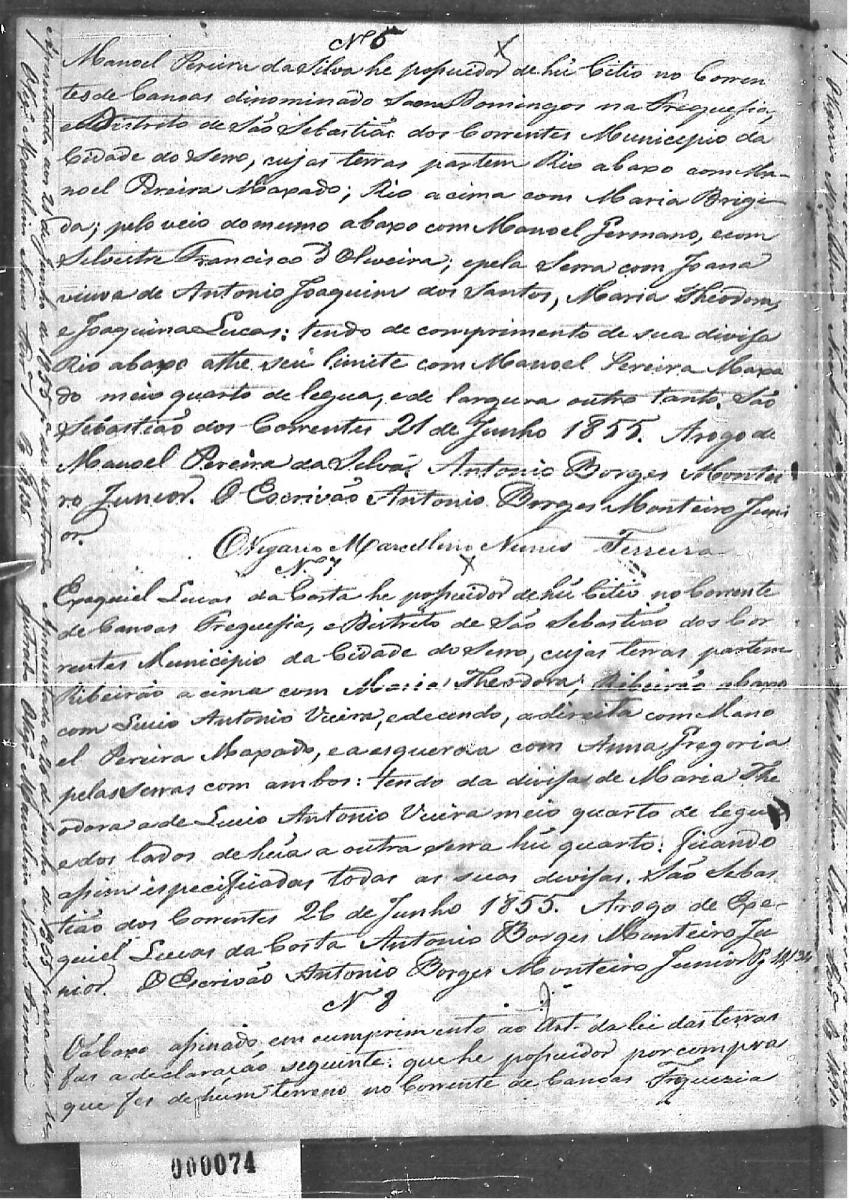 Nº 6
Manoel Pereira da Silva he possuidor de hũ Citio no Corren-
tes de Canoas dinominado Saom Domingos na Freguesia,
e Districto de São Sebastião dos Correntes Municipio da
Cidade do Serro, cujas terras partem Rio abaxo com Ma-
noel Pereira Maxado; Rio acima com Maria Brigi-
da; pelo veio do mesmo abaxo com Manoel Germano, e com
Silvestre Francisco d'Oliveira; e pela Serra com Joana
viuva de Antonio Joaquim dos Santos, Maria Theodora,
e Joaquina Lucas: tendo de comprimento de sua divisa
Rio abaxo athe seu limite com Manoel Pereira Maxa
do meio quarto de legua, e de largura outro tanto. São
Sebastião dos Correntes 21 de Junho 1855. Arogo de
Manoel Pereira da Silva, Antonio Borges Montei
ro Junior. O Escrivão Antonio Borges Monteiro Juni
or.
O Vigario Marcellino Nunes Ferreira
Nº 7
Ezequiel Lucas da Costa he possuidor de hũ Citio no Corrente
de Canoas Freguesia, e Districto de São Sebastião dos Cor
rentes Municipio da Cidade do Serro, cujas terras partem
Ribeirão acima com Maria Theodora; Ribeirão abaxo
com Lucio Antonio Vieira, e decendo, a direita com Mano
el Pereira Maxado, e a esquerda com Anna Gregoria
pelas serras com ambos: tendo da divisas de Maria The
odora a de Lucio Antonio Vieira meio quarto de legua
e dos lados de hũa a outra serra hũ quarto: ficando
assim especificadas todas as suas divisas. São Sebas
tião dos Correntes 26 de Junho 1855. Arogo de Eze-
quiel Lucas da Costa Antonio Borges Monteiro Ju
nior. O Escrivão Antonio Borges Monteiro Junior
Nº 8
O abaxo assinado em cumprimento ao Art. da lei das terras
fas a declaração seguinte: que he possuidor por compra
que fes de hum terreno no Corrente de Canoas Freguezia
000074